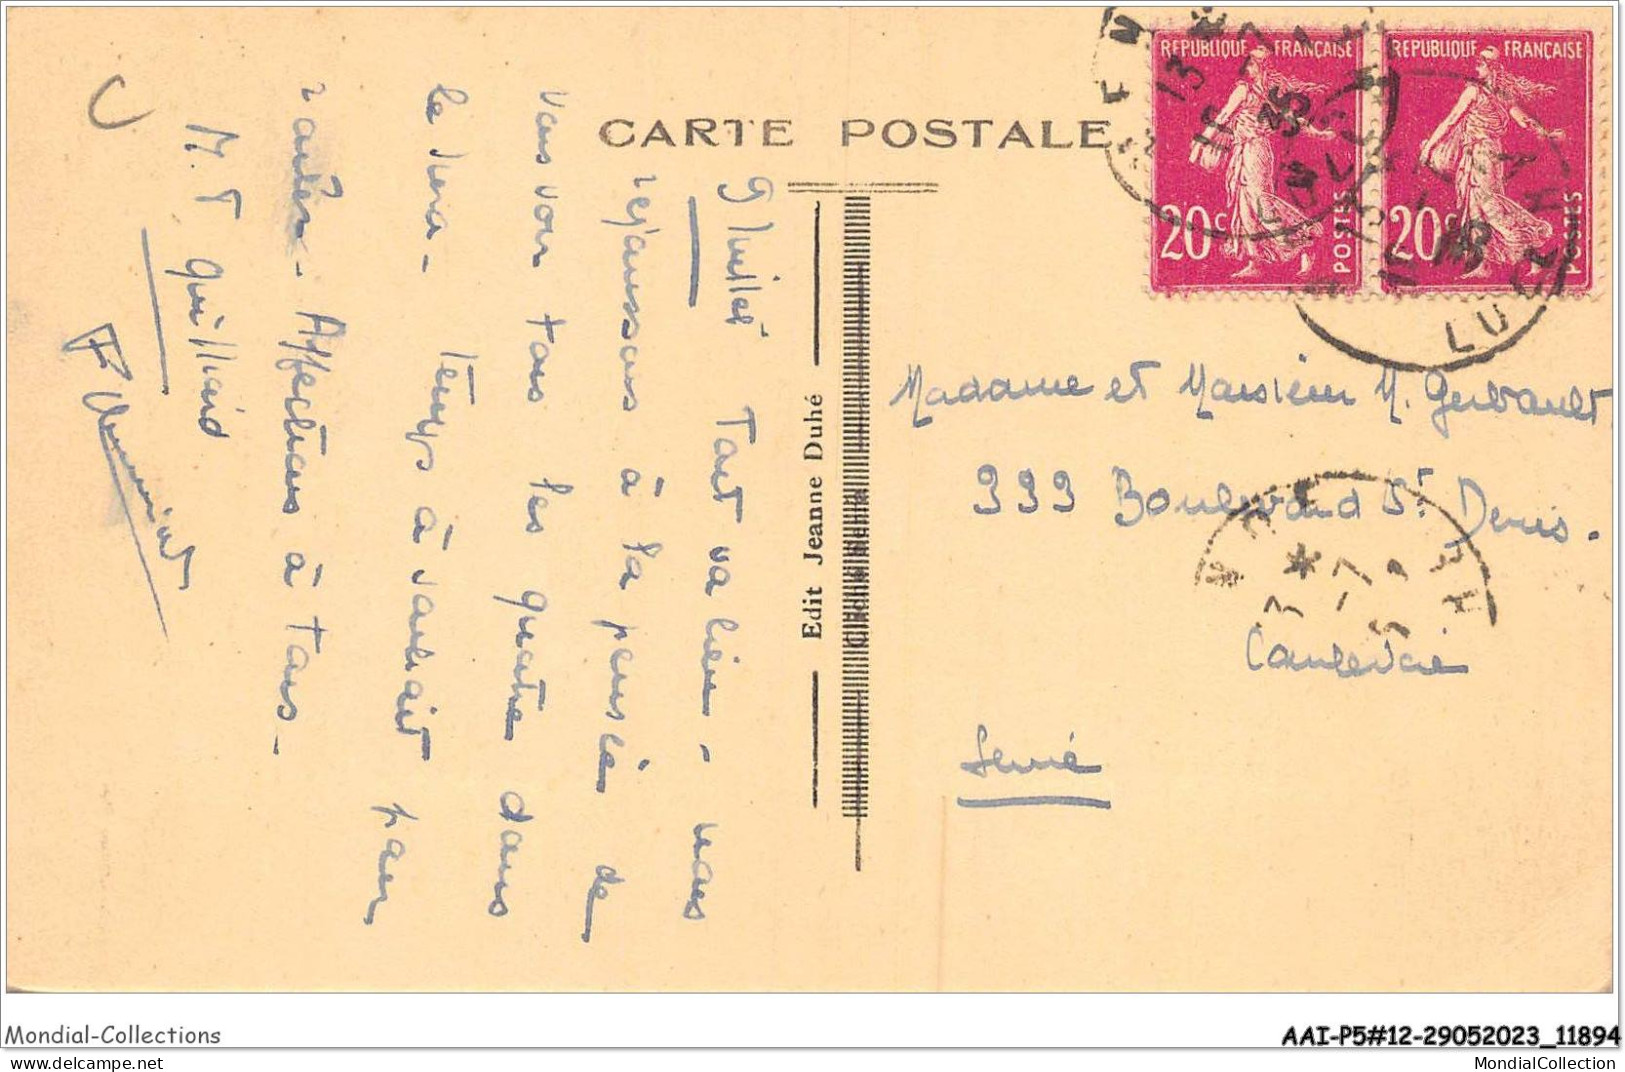 CARTE POSTALE
REPUBLIQUE FRANÇAISE
20c
POSTES
REPUBLIQUE FRANÇAISE
20c
POSTES
13
35
LUCE
9 Juillet Tout va bien - nous
réjouissons à la pensée de
vous voir tous les quatre dans
le Jura - Temps à souhait pour
Affections à tous -
Edit Jeanne Duhé
Madame et Monsieur M. Gerbault
333 Boulevard St Denis.
Courbevoie
Seine
Mondial-Collections
AAI-P5#12-29052023_11894
MondialCollection